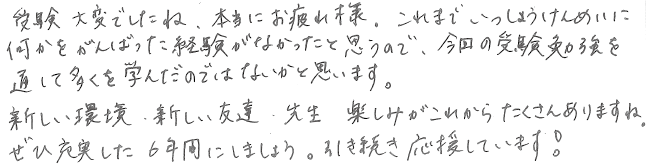 受験 大変でしたね、本当にお疲れ様。これまでいっしょうけんめいに
何かをがんばった経験がなかったと思うので、今回の受験勉強を
通して多くを学んだのではないかと思います。
新しい環境、新しい友達、先生 楽しみがこれからたくさんありますね。
ぜひ充実した6年間にしましょう。引き続き応援しています!